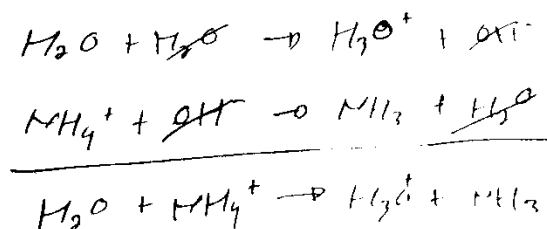 H₂O + H₂O → H₃O⁺ + OH⁻
NH₄⁺ + OH → NH₃ + H₂O
H₂O + NH₄⁺ → H₃O⁺ + NH₃